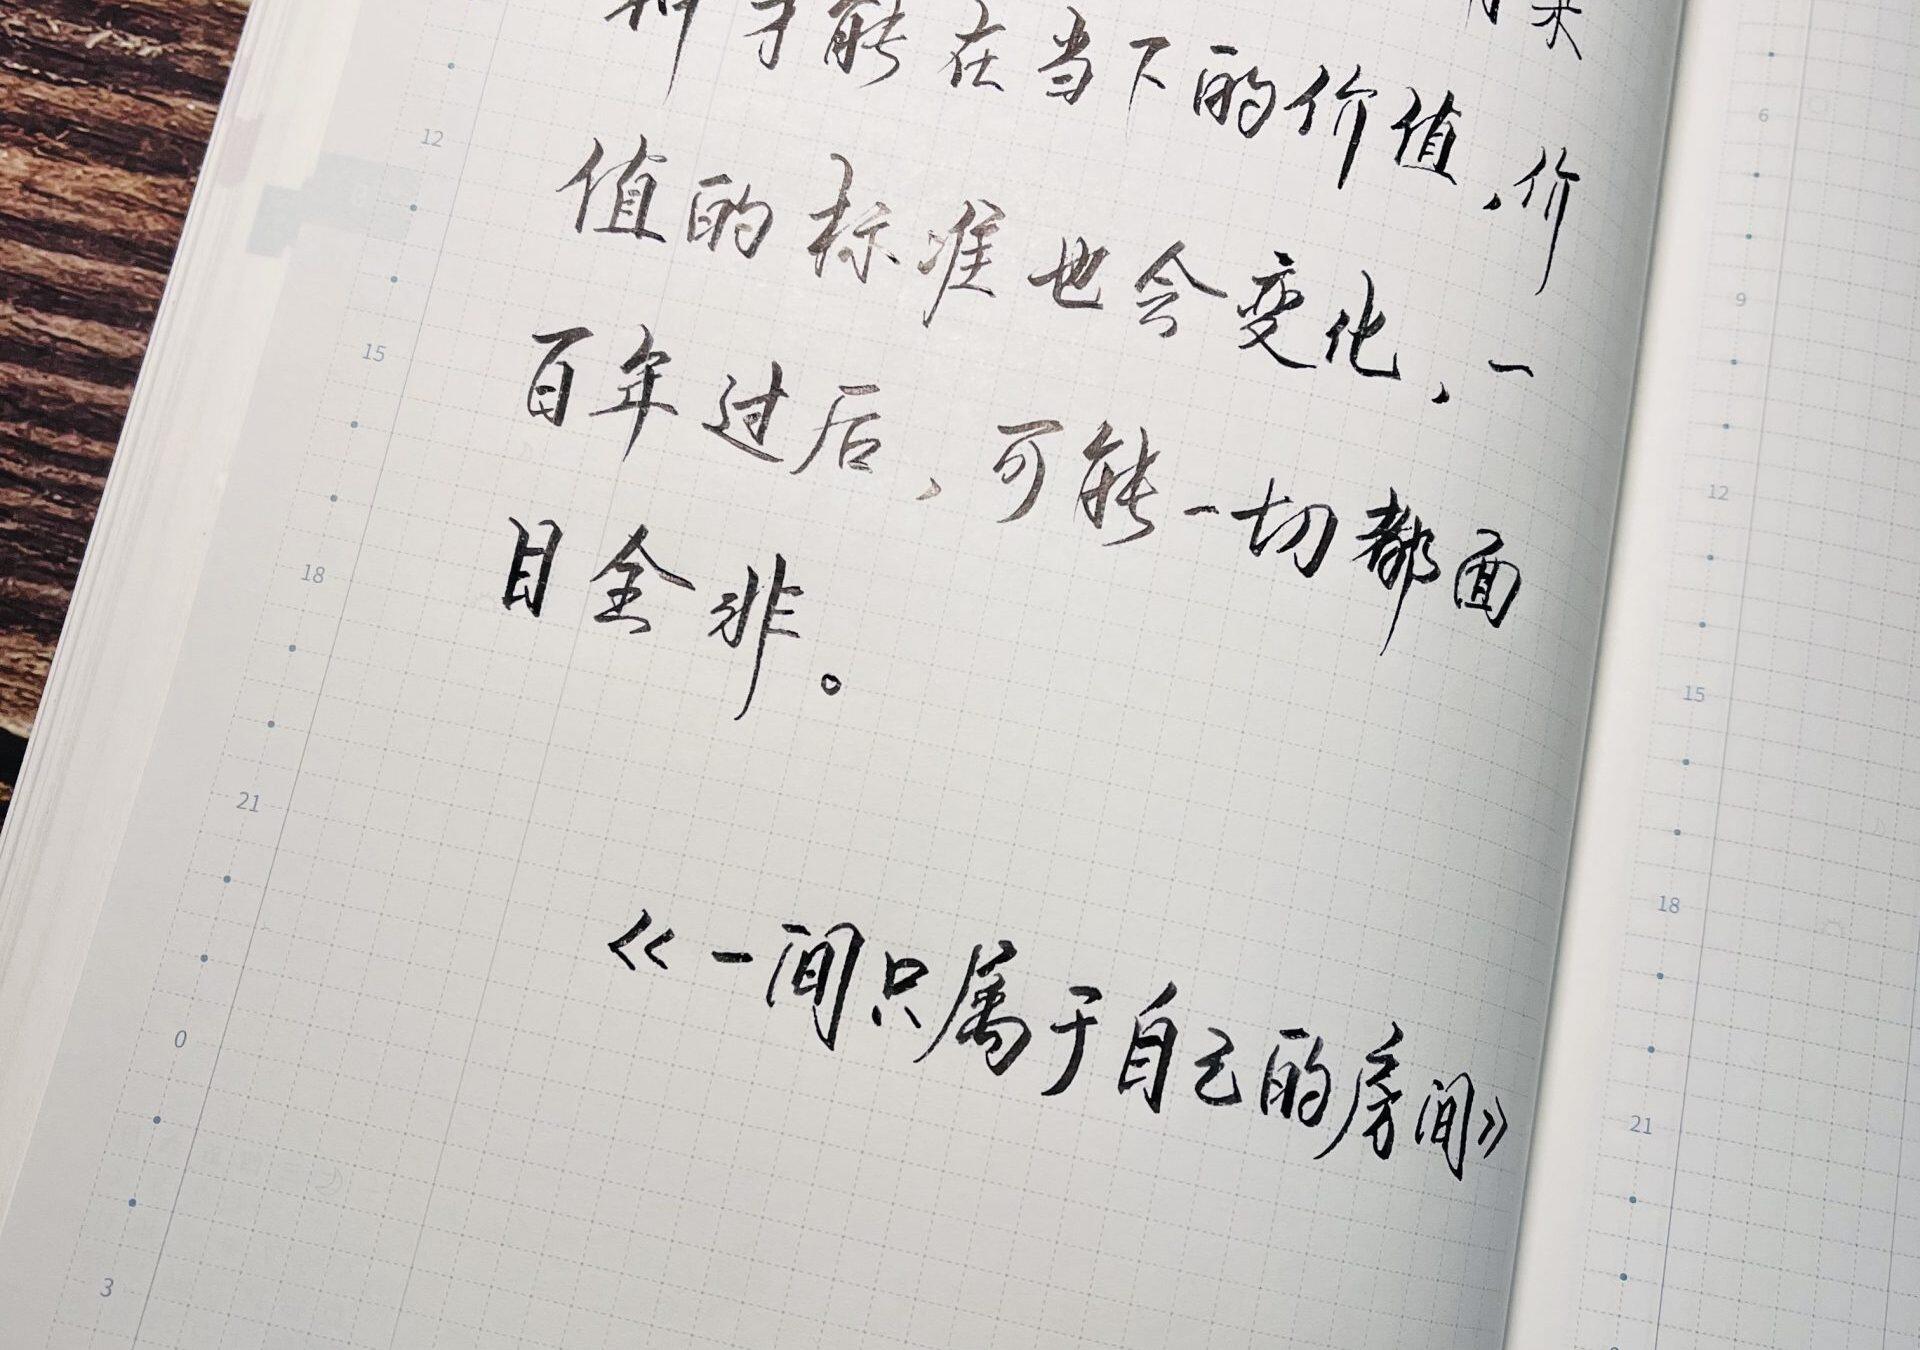 种才能在当下的价值，价
值的标准也会变化，一
百年过后，可能一切都面
目全非。
《一间只属于自己的房间》
12
15
18
21
0
3
6
9
12
15
18
21